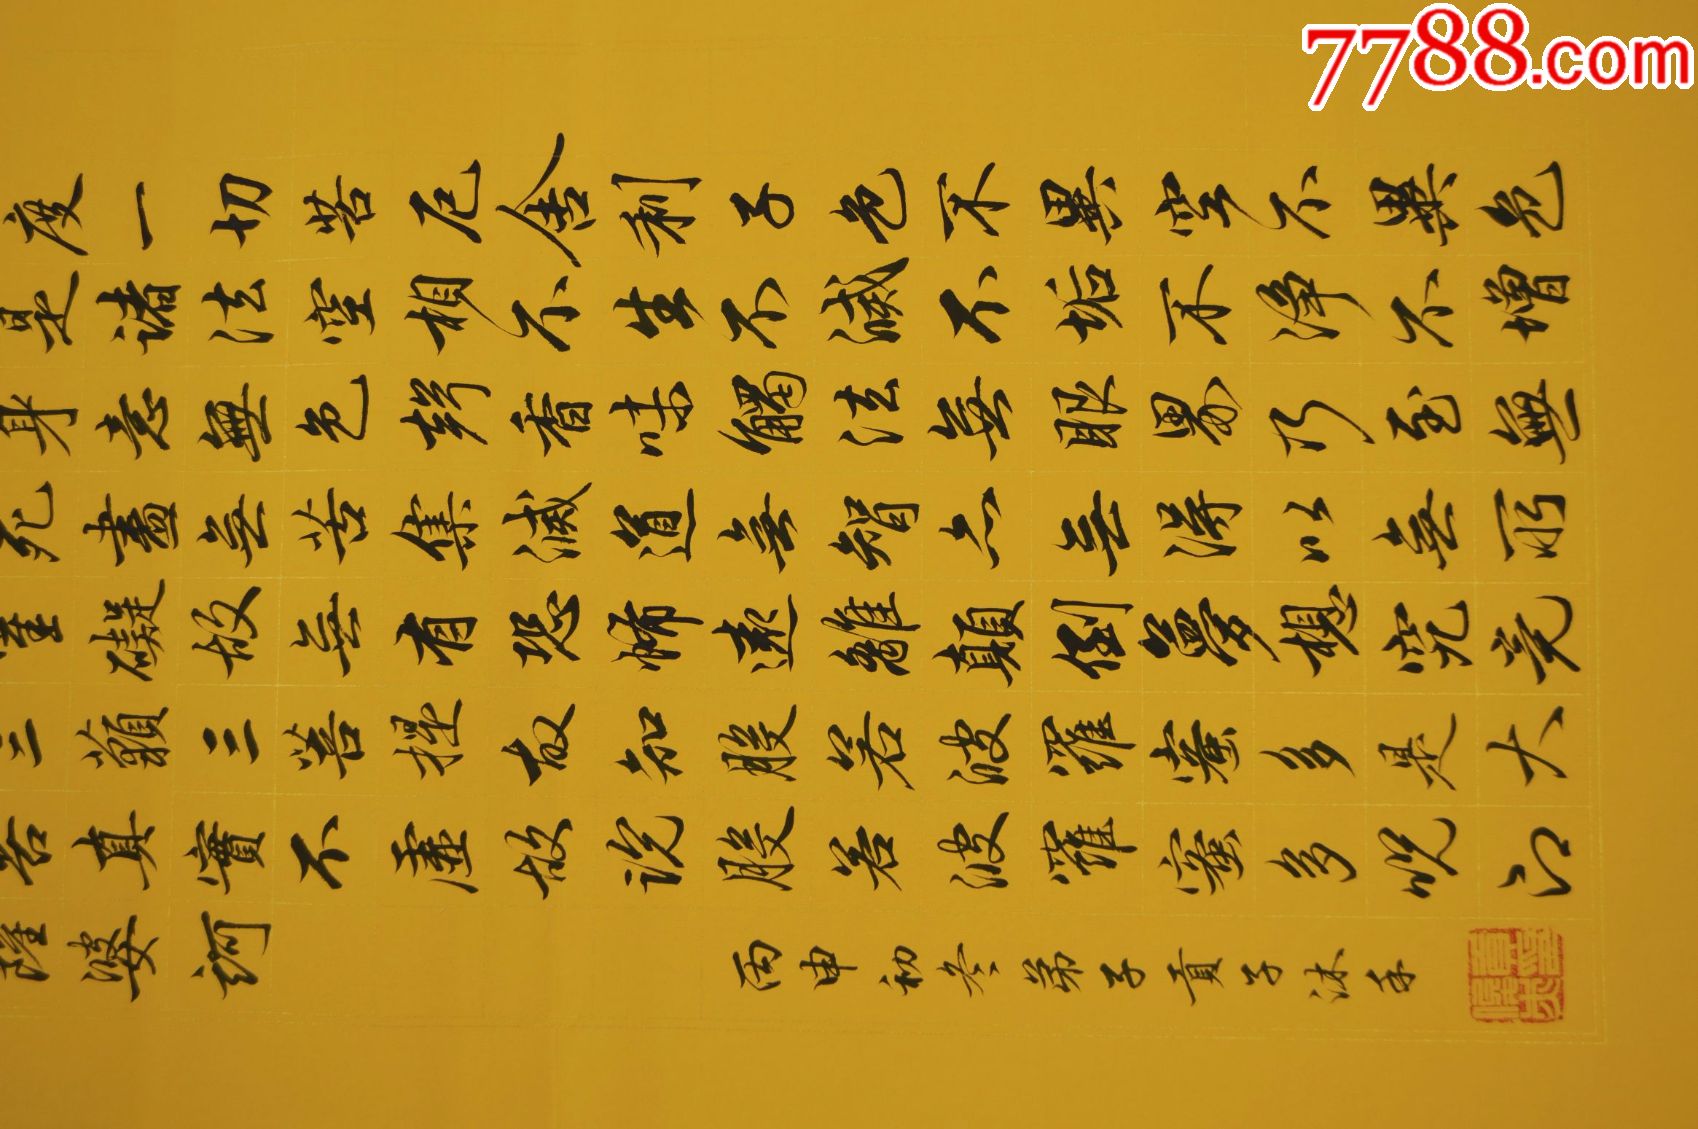 度一切苦厄舍利子色不異空不異色
是諸法空相不生不滅不垢不淨不增
身意無色聲香味觸法無眼界乃至無
死盡無苦集滅道無智亦無得以無所
罣礙故無有恐怖遠離顛倒夢想究竟
三藐三菩提故知般若波羅蜜多是大
苦真實不虛故說般若波羅蜜多咒即
薩婆訶
丙申初冬弟子子沐手
7788.com